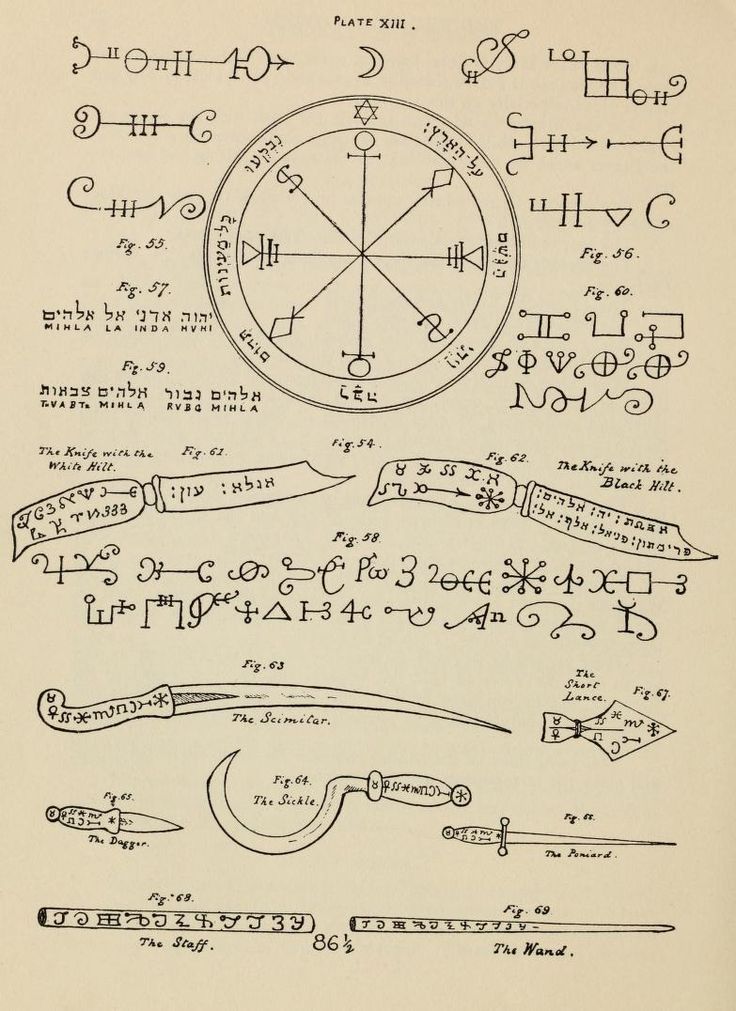 PLATE XIII.
נִבְקְעוּ
כָּל־מַעְיְנוֹת
תְּהוֹם
רַבָּה
וַיְהִי
הַגֶּשֶׁם
עַל־הָאָרֶץ:
Fig. 55.
Fig. 56.
Fig. 57.
יהוה אדני אל אלהים
MIHLA LA INDA HVHI
Fig. 59.
אלהים גבור אלהים צבאות
TVABTz MIHLA RVBG MIHLA
Fig. 60.
Fig. 54.
The Knife with the
White Hilt.
Fig. 61.
אגלא: עון:
Fig. 62.
The Knife with the
Black Hilt.
יה: אלהים:
פניאל: אל:
Fig. 58.
Fig. 63
The Scimitar.
The
Short
Lance.
Fig. 67.
Fig. 64.
The Sickle.
Fig. 65.
The Dagger.
Fig. 66.
The Poniard.
Fig. 68.
The Staff.
86½
Fig. 69
The Wand.